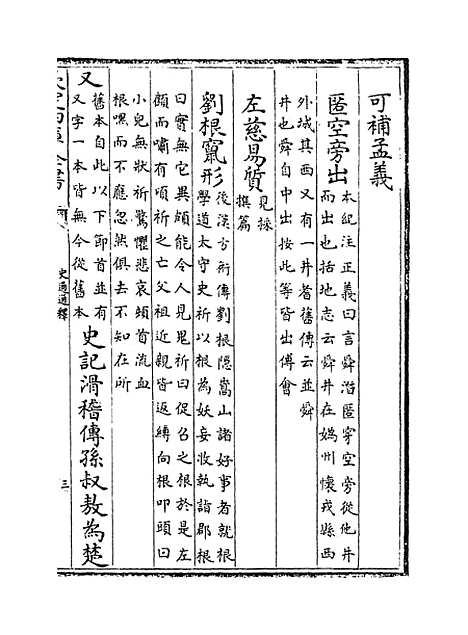 可補孟義
匿空旁出本紀注正義曰言舜潛匿穿空旁從他井
而出也括地志云舜井在媯州懷戎縣西
外城其西又有一井耆舊傳云並舜
井也舜自中出按此等皆出傅會
左慈易質見採
撰篇
劉根竄形後漢方術傳劉根隱嵩山諸好事者就根
學道太守史祈以根為妖妄收執詣郡根
曰實無它異頗能令人見鬼祈曰促召之根於是左
顧而嘯有頃祈之亡父祖近親皆返縛向根叩頭曰
小兒無狀祈驚懼悲哀頓首流血
根嘿而不應忽然俱去不知在所
又舊本自此以下節首並有
又字一本皆無今從舊本
史記滑稽傳孫叔敖為楚
史通通釋
三